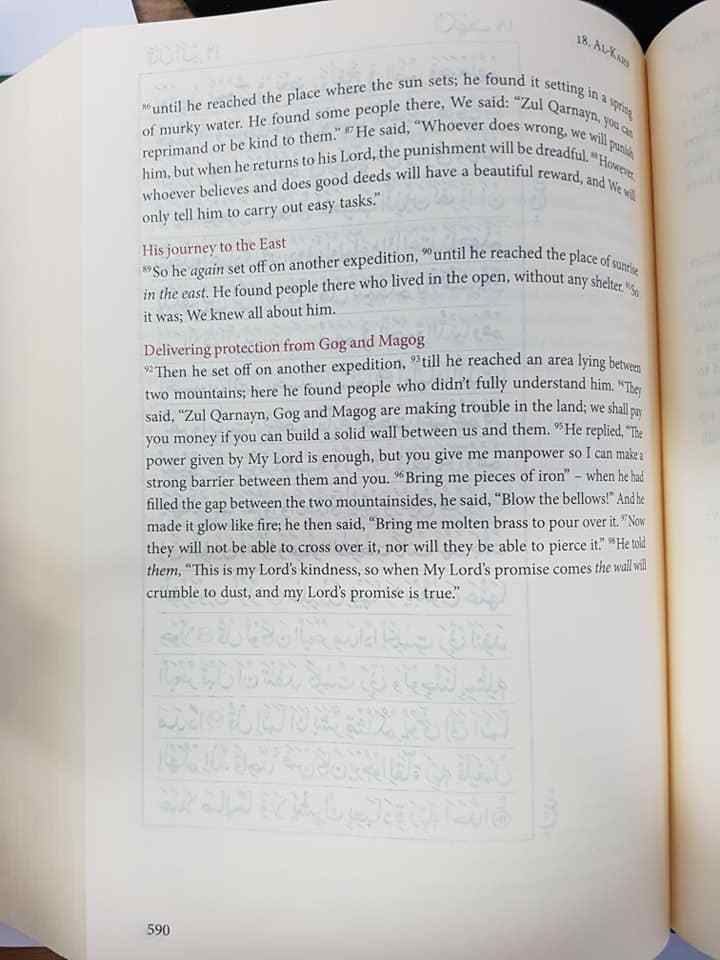 18. AL-KAHF
⁸⁶until he reached the place where the sun sets; he found it setting in a spring
of murky water. He found some people there, We said: “Zul Qarnayn, you can
reprimand or be kind to them.” ⁸⁷He said, “Whoever does wrong, we will punish
him, but when he returns to his Lord, the punishment will be dreadful. ⁸⁸However,
whoever believes and does good deeds will have a beautiful reward, and We will
only tell him to carry out easy tasks.”
His journey to the East
⁸⁹So he again set off on another expedition, ⁹⁰until he reached the place of sunrise
in the east. He found people there who lived in the open, without any shelter. ⁹¹So
it was; We knew all about him.
Delivering protection from Gog and Magog
⁹²Then he set off on another expedition, ⁹³till he reached an area lying between
two mountains; here he found people who didn’t fully understand him. ⁹⁴They
said, “Zul Qarnayn, Gog and Magog are making trouble in the land; we shall pay
you money if you can build a solid wall between us and them. ⁹⁵He replied, “The
power given by My Lord is enough, but you give me manpower so I can make a
strong barrier between them and you. ⁹⁶Bring me pieces of iron” – when he had
filled the gap between the two mountainsides, he said, “Blow the bellows!” And he
made it glow like fire; he then said, “Bring me molten brass to pour over it. ⁹⁷Now
they will not be able to cross over it, nor will they be able to pierce it.” ⁹⁸He told
them, “This is my Lord’s kindness, so when My Lord’s promise comes the wall will
crumble to dust, and my Lord’s promise is true.”
590